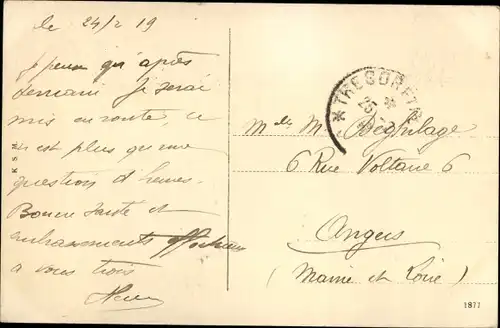 le 24/2 19
Je pense qu'après
demain je serai
mis en route, ce
n'est plus qu'une
question d'heures.
Bonne santé et
embrassements affectueux
à vous trois
TRESOR ET
25
Melle M. Béghilage
6 Rue Voltaire 6
Angers
(Maine et Loire)
K S M
1877